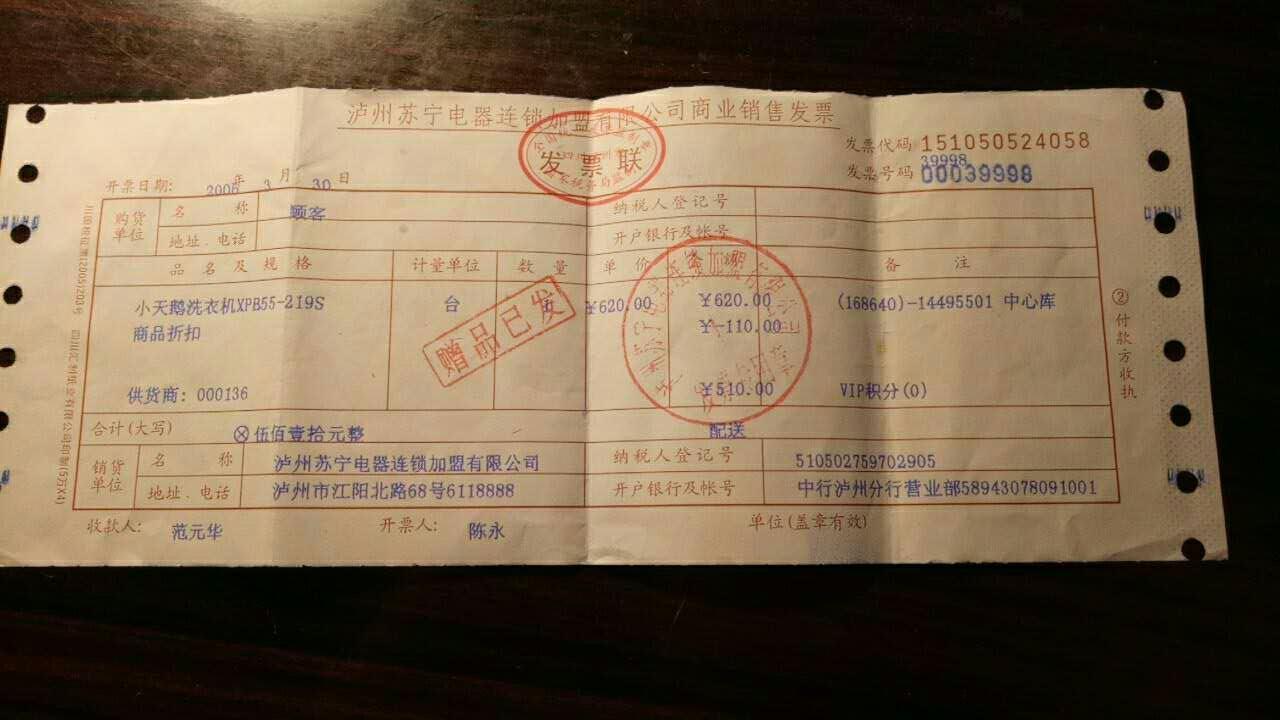 泸州苏宁电器连锁加盟有限公司商业销售发票
发票联
发票代码 151050524058
39998
发票号码 00039998
开票日期: 2006 年 3 月 30 日
购货单位 名 称 顾客 纳税人登记号
地址.电话 开户银行及帐号
品名及规格 计量单位 数量 单价 备注
小天鹅洗衣机XPB55-219S 台 ¥620.00 ¥620.00 (168640)-14495501 中心库
商品折扣 ¥-110.00
赠品已发
供货商: 000136 ¥510.00 VIP积分(0)
合计(大写) ⊗伍佰壹拾元整 配送
销货单位 名 称 泸州苏宁电器连锁加盟有限公司 纳税人登记号 510502759702905
地址.电话 泸州市江阳北路68号6118888 开户银行及帐号 中行泸州分行营业部58943078091001
收款人: 范元华 开票人: 陈永 单位(盖章有效)
②付款方收执